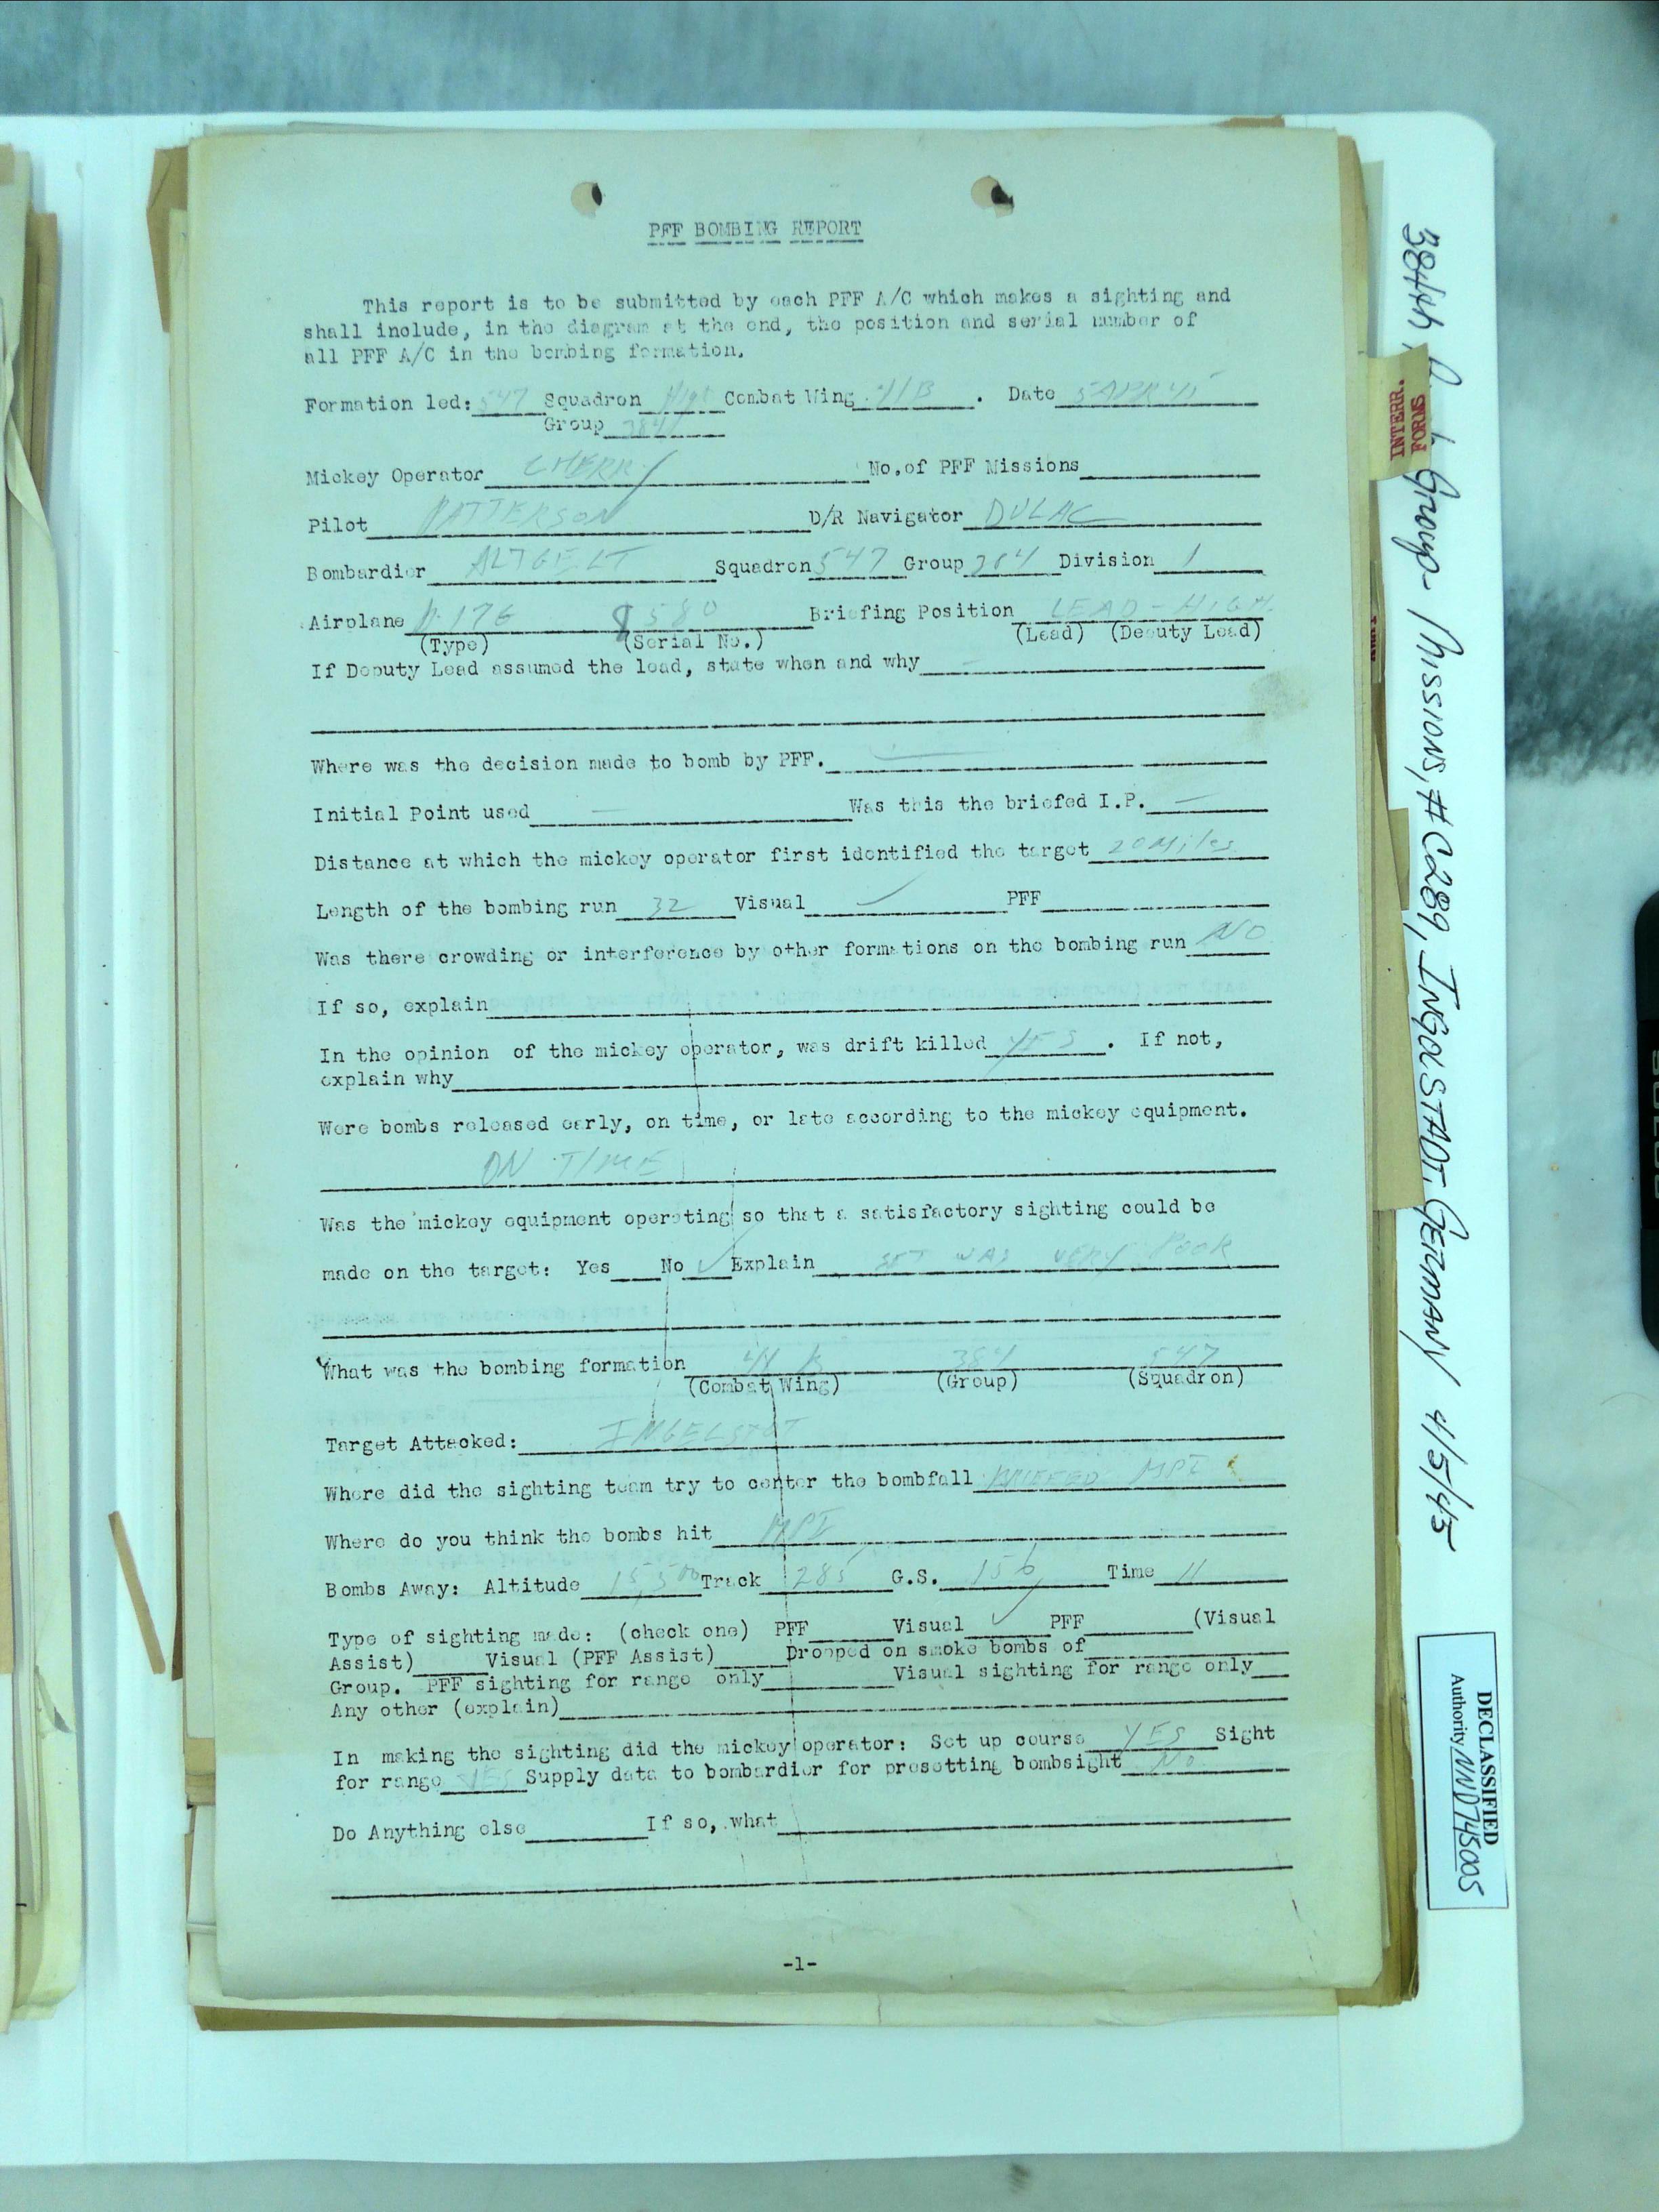 PFF BOMBING REPORT
This report is to be submitted by each PFF A/C which makes a sighting and
shall include, in the diagram at the end, the position and serial number of
all PFF A/C in the bombing formation.
Formation led: 547 Squadron High Combat Wing 41B . Date 5 APR 45
Group 384
Mickey Operator CHERRY No. of PFF Missions
Pilot PATTERSON D/R Navigator DULAC
Bombardier ALTGELT Squadron 547 Group 384 Division 1
Airplane B-17G 8580 Briefing Position LEAD - HIGH
(Type) (Serial No.) (Lead) (Deputy Lead)
If Deputy Lead assumed the lead, state when and why
Where was the decision made to bomb by PFF.
Initial Point used — Was this the briefed I.P. —
Distance at which the mickey operator first identified the target 20 Miles
Length of the bombing run 32 Visual ✓ PFF
Was there crowding or interference by other formations on the bombing run NO
If so, explain
In the opinion of the mickey operator, was drift killed YES . If not,
explain why
Were bombs released early, on time, or late according to the mickey equipment.
ON TIME
Was the mickey equipment operating so that a satisfactory sighting could be
made on the target: Yes No ✓ Explain SET WAS VERY POOR
What was the bombing formation 41 B 384 547
(Combat Wing) (Group) (Squadron)
Target Attacked: INGELSTAT
Where did the sighting team try to center the bombfall BRIEFED MPI
Where do you think the bombs hit MPI
Bombs Away: Altitude 15,500 Track 285 G.S. 156 Time 11
Type of sighting made: (check one) PFF Visual ✓ PFF (Visual
Assist) Visual (PFF Assist) Dropped on smoke bombs of
Group. PFF sighting for range only Visual sighting for range only
Any other (explain)
In making the sighting did the mickey operator: Set up course YES Sight
for range YES Supply data to bombardier for presetting bombsight NO
Do Anything else If so, what
-1-
INTERR.
FORMS
384th Group - Missions, # 289, INGOLSTADT, GERMANY 4/5/45
DECLASSIFIED
Authority NND745005